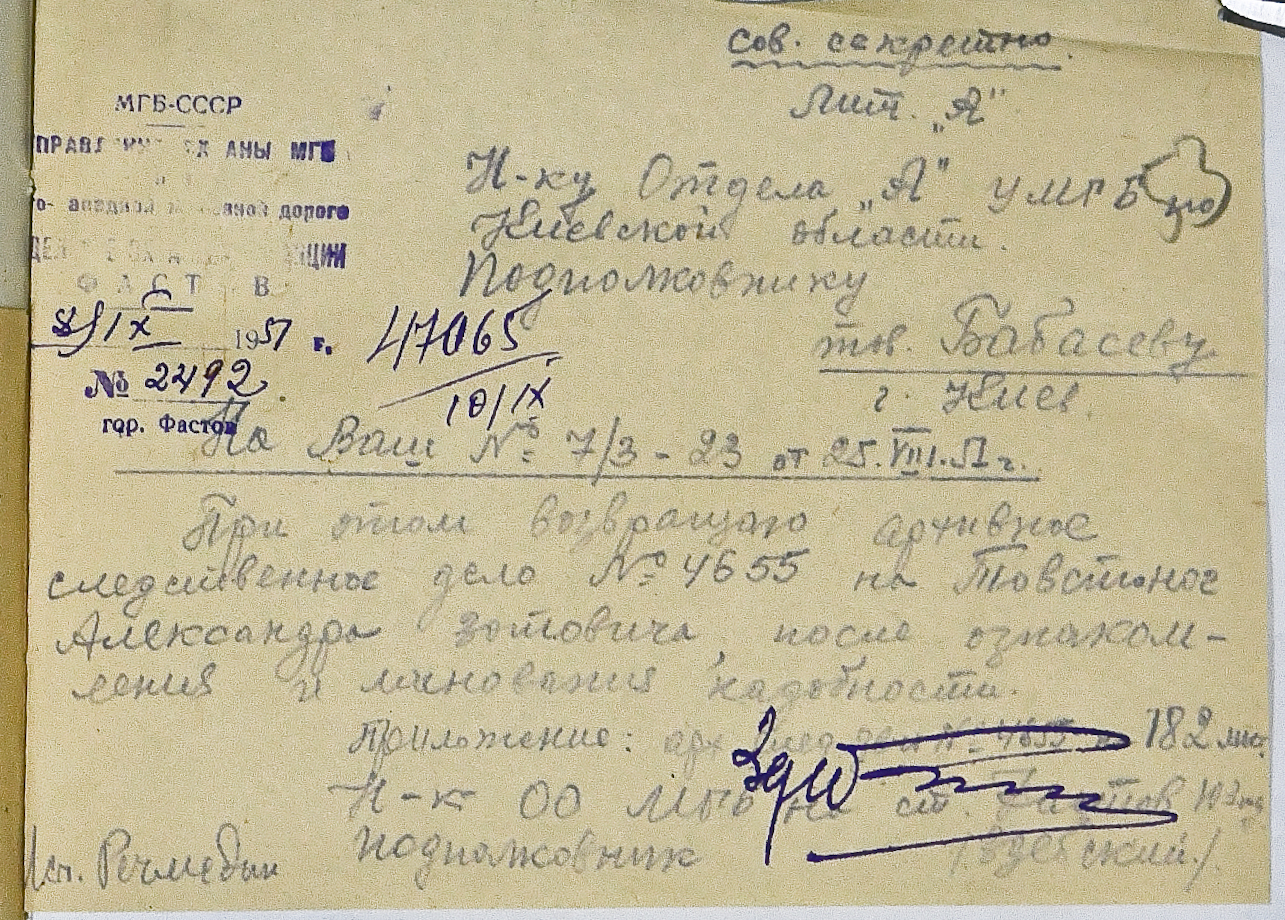 Сов. секретно.
Лит. „А"
МГБ-СССР
АНЫ МГБ
дороге
ФАСТ В
8/IX 1951 г.
№ 2492
гор. Фастов
47065
10/IX
Н-ку Отдела „А" УМГБ
Киевской области.
Подполковнику
тов. Бабасеву
г. Киев.
На Ваш № 7/3-23 от 25.VIII.51 г.
При этом возвращаю архивное
следственное дело № 4655 на Товстонос
Александра Зотовича, после ознаком-
ления и минования надобности.
Приложение: арх. след. дело № 4655 182 лис.
Н-к ОО МГБ на ст. Фастов
Подполковник
Исп.